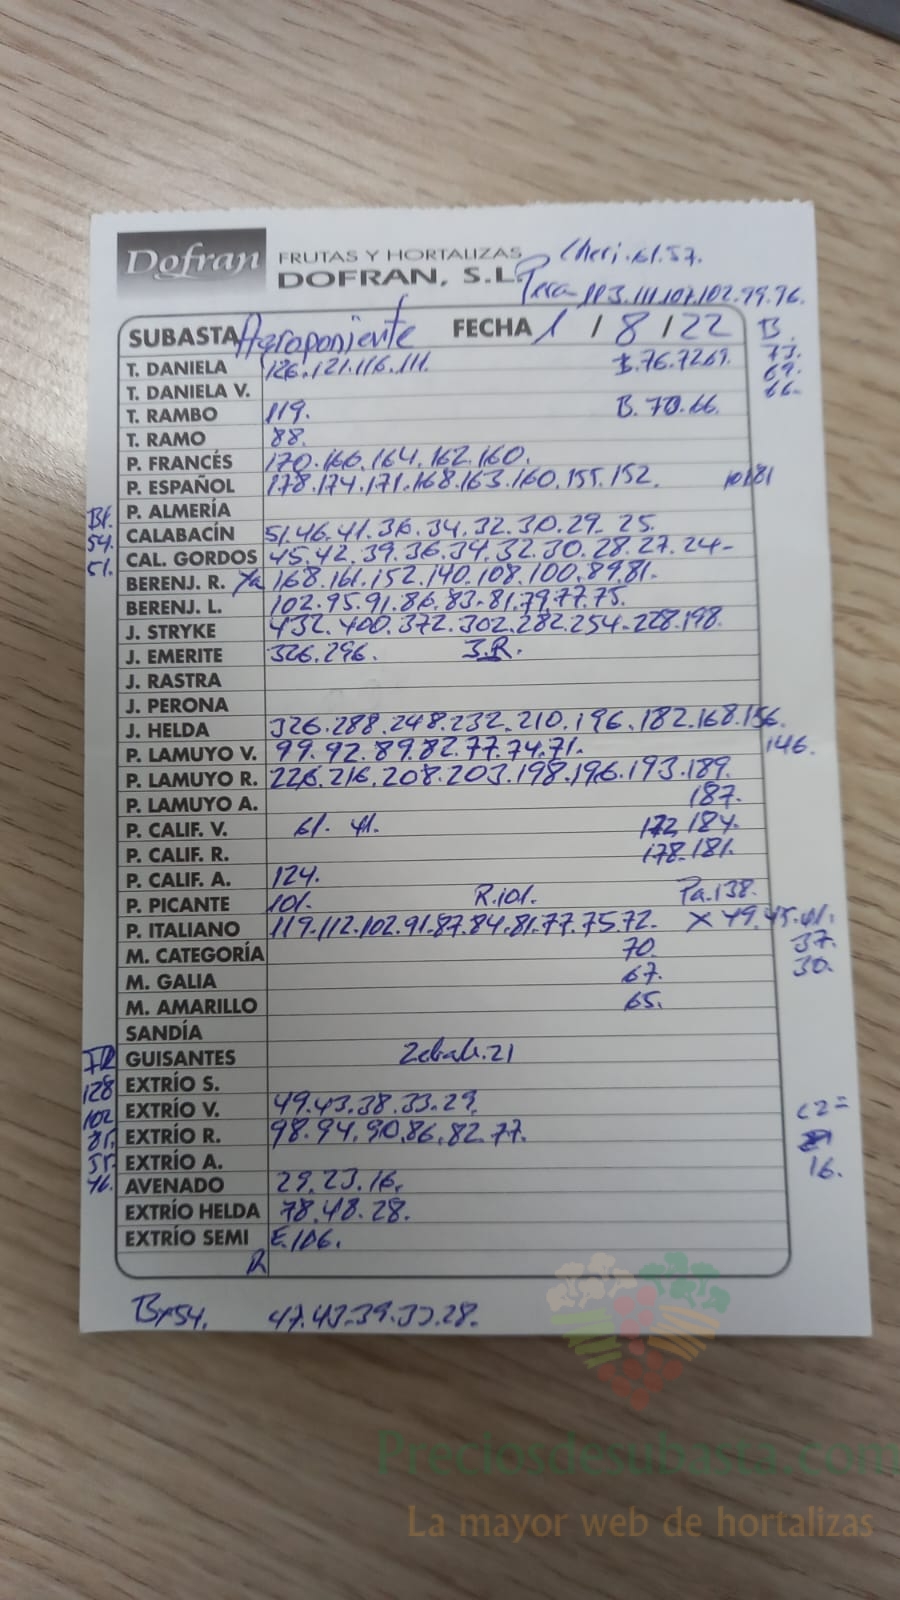 Dofran FRUTAS Y HORTALIZAS Cheri.61.57.
DOFRAN, S.L. Pera 113.111.107.102.99.96.
SUBASTA Agroponiente FECHA 1 / 8 / 22 B.
T. DANIELA 126.121.116.111. 76.72.69. 73.
69.
T. DANIELA V. 66.
T. RAMBO 119. B.70.66.
T. RAMO 88.
P. FRANCÉS 170.166.164.162.160.
P. ESPAÑOL 178.174.171.168.163.160.155.152.
P. ALMERÍA
54. CALABACÍN 51.46.41.36.34.32.30.29.25.
51. CAL. GORDOS 45.42.39.36.34.32.30.28.27.24-
BERENJ. R. Ya 168.161.152.140.108.100.89.81.
BERENJ. L. 102.95.91.86.83-81.79.77.75.
J. STRYKE 432.400.372.302.282.254-228.198.
J. EMERITE 326.296. J.R.
J. RASTRA
J. PERONA
J. HELDA 326.288.248.232.210.196.182.168.156.
P. LAMUYO V. 99.92.89.82.77.74.71. 146.
P. LAMUYO R. 226.216.208.203.198.196.193.189.
P. LAMUYO A. 187.
P. CALIF. V. 61. 41. 184.
P. CALIF. R. 178.181.
P. CALIF. A. 124.
P. PICANTE 101. R.101. Pa.138.
P. ITALIANO 119.112.102.91.87.84.81.77.75.72. X 49.45.41.
M. CATEGORÍA 70. 37.
M. GALIA 67. 30.
M. AMARILLO 65.
SANDÍA
GUISANTES
128 EXTRÍO S.
102 EXTRÍO V. 49.43.38.33.29. C2=
EXTRÍO R. 98.94.90.86.82.77.
EXTRÍO A. 16.
46. AVENADO 29.23.16.
EXTRÍO HELDA 78.48.28.
EXTRÍO SEMI E.106.
R
47.43.39.33.28.
Preciosdesubasta.com
La mayor web de hortalizas